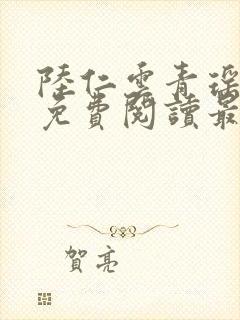 陸仁雲青瑤
免費閱讀最
賀亮